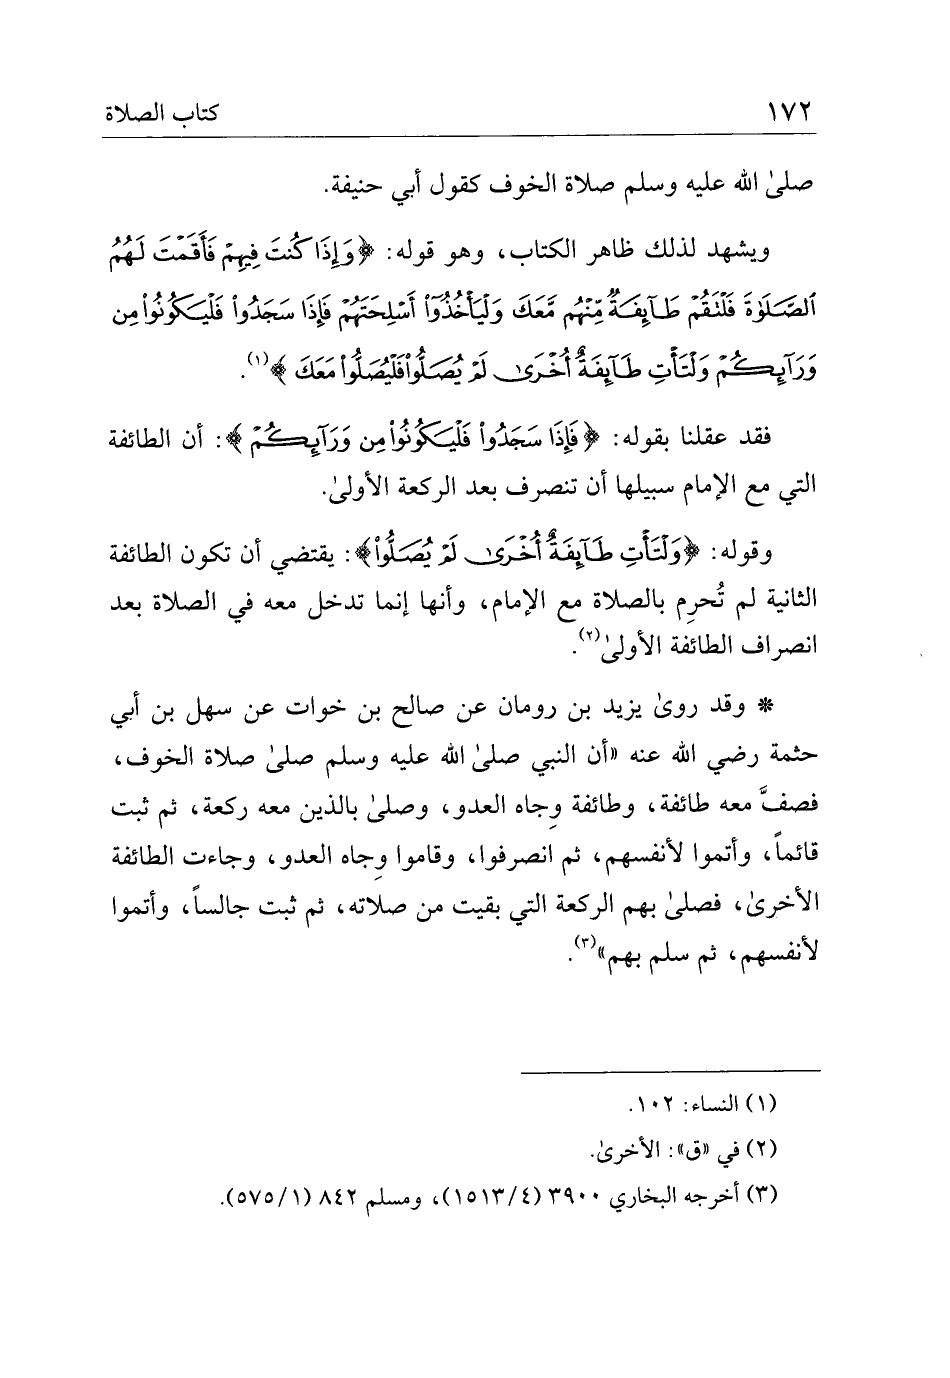 ١٧٢ كتاب الصلاة
صلىٰ الله عليه وسلم صلاة الخوف كقول أبي حنيفة.
ويشهد لذلك ظاهر الكتاب، وهو قوله: ﴿وَإِذَا كُنتَ فِيهِمْ فَأَقَمْتَ لَهُمُ
ٱلصَّلَوٰةَ فَلْتَقُمْ طَآئِفَةٌ مِّنْهُم مَّعَكَ وَلْيَأْخُذُوٓا۟ أَسْلِحَتَهُمْ فَإِذَا سَجَدُوا۟ فَلْيَكُونُوا۟ مِن
وَرَآئِكُمْ وَلْتَأْتِ طَآئِفَةٌ أُخْرَىٰ لَمْ يُصَلُّوا۟ فَلْيُصَلُّوا۟ مَعَكَ﴾(١).
فقد عقلنا بقوله: ﴿فَإِذَا سَجَدُوا۟ فَلْيَكُونُوا۟ مِن وَرَآئِكُمْ﴾: أن الطائفة
التي مع الإمام سبيلها أن تنصرف بعد الركعة الأولىٰ.
وقوله: ﴿وَلْتَأْتِ طَآئِفَةٌ أُخْرَىٰ لَمْ يُصَلُّوا۟﴾: يقتضي أن تكون الطائفة
الثانية لم تُحرِم بالصلاة مع الإمام، وأنها إنما تدخل معه في الصلاة بعد
انصراف الطائفة الأولىٰ(٢).
* وقد روىٰ يزيد بن رومان عن صالح بن خوات عن سهل بن أبي
حثمة رضي الله عنه «أن النبي صلىٰ الله عليه وسلم صلىٰ صلاة الخوف،
فصفَّ معه طائفة، وطائفة وِجاه العدو، وصلىٰ بالذين معه ركعة، ثم ثبت
قائماً، وأتموا لأنفسهم، ثم انصرفوا، وقاموا وِجاه العدو، وجاءت الطائفة
الأخرىٰ، فصلىٰ بهم الركعة التي بقيت من صلاته، ثم ثبت جالساً، وأتموا
لأنفسهم، ثم سلم بهم»(٣).
(١) النساء: ١٠٢.
(٢) في «ق»: الأخرىٰ.
(٣) أخرجه البخاري ٣٩٠٠ (١٥١٣/٤)، ومسلم ٨٤٢ (٥٧٥/١).